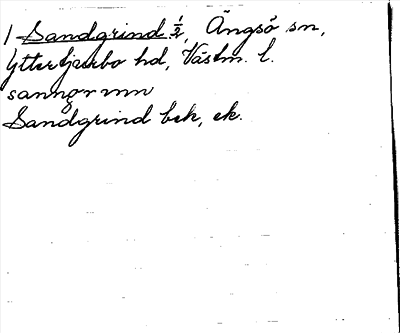 1 Sandgrind ½, Ängsö sn,
Yttertjurbo hd, Västm. l.
Sandgrind bek, ek.